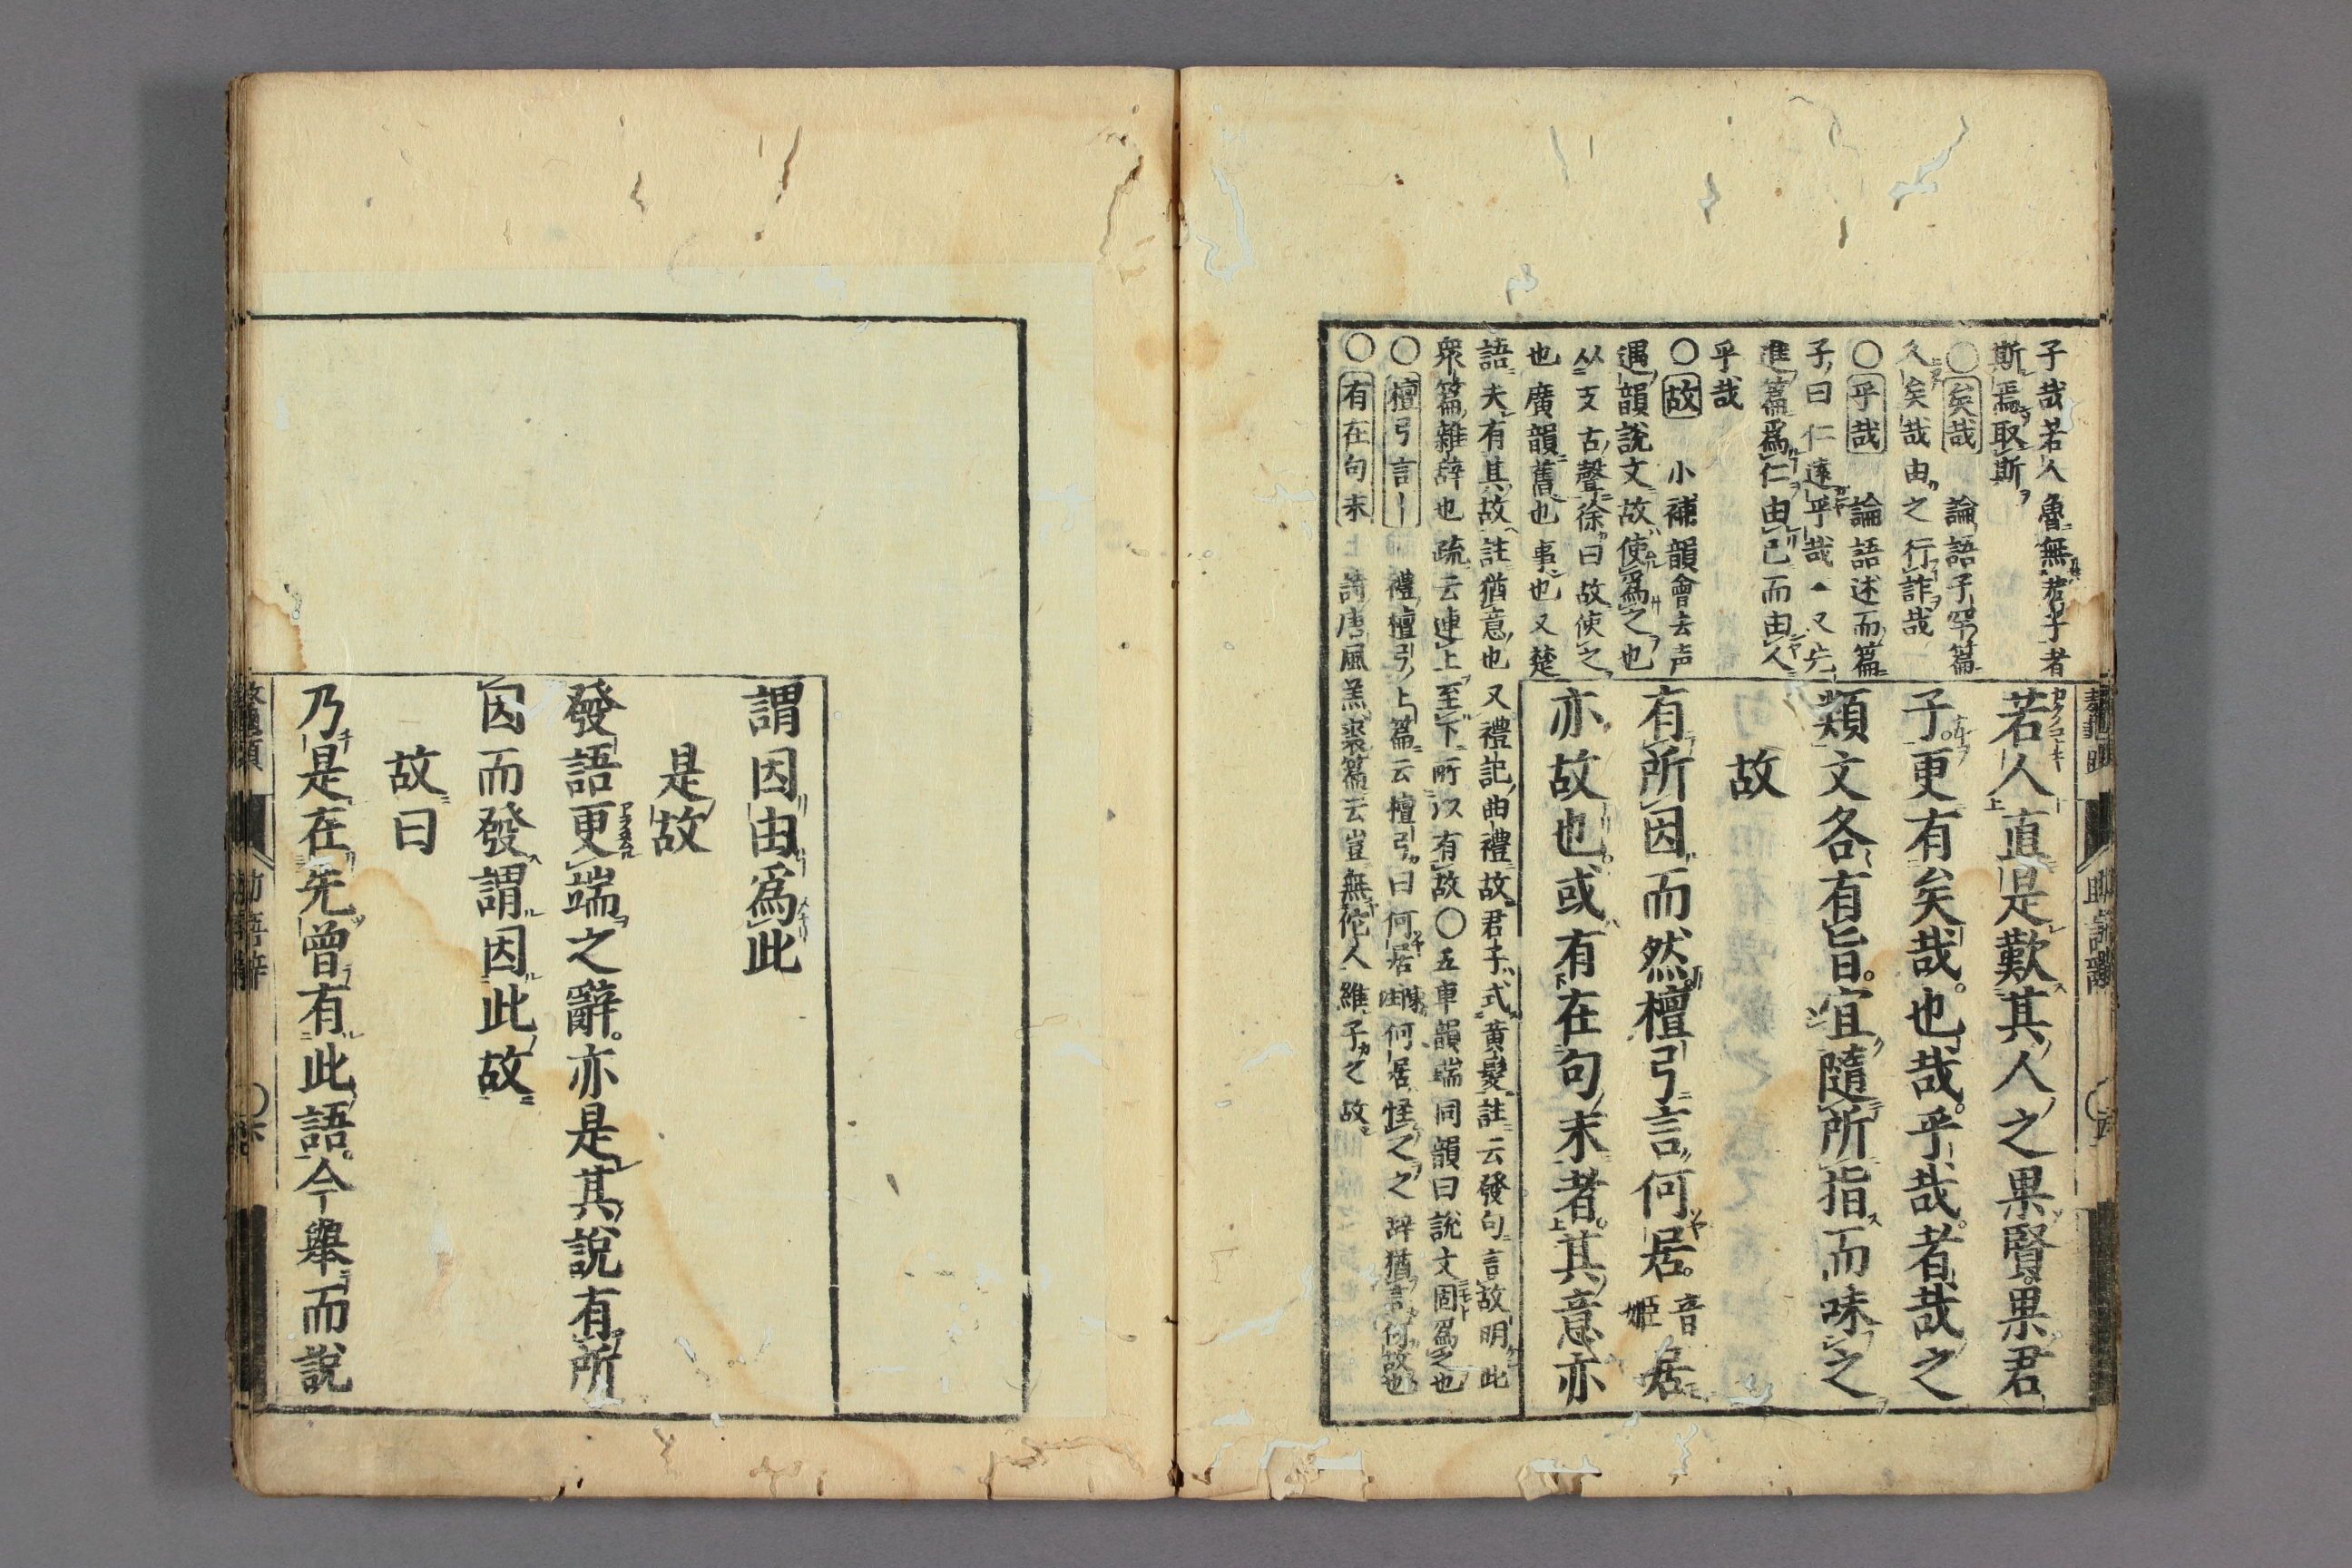 子哉若人魯無君子者
斯焉取斯
○矣哉 論語子罕篇
久矣哉由之行詐哉
○乎哉 論語述而篇
子曰仁遠乎哉 又先
進篇爲仁由己而由人
乎哉
○故 小補韻會去声
遇韻說文故使爲之也
从攴古聲徐曰故使之
也廣韻舊也事也又楚
語夫有其故註猶意也又禮記曲禮故君子式黃髮註云發句言故明此
衆篇雜辞也疏云連上至下所以有故○五車韻端同韻曰說文固爲之也
○檀弓言｜ 禮檀弓上篇云檀弓曰何居註何居怪之之辞猶言何故也
○有在句末 詩唐風羔裘篇云豈無佗人維子之故
若人直是歎其人之果賢果君
子更有矣哉也哉乎哉者哉之
類文各有旨宜隨所指而味之
故
有所因而然檀弓言何居音姬居
亦故也或有在句末者其意亦
助語辭
謂因由爲此
是故
發語更端之辭亦是其說有所
因而發謂因此故
故曰
乃是在先曾有此語今舉而說
鼇頭
助語辭